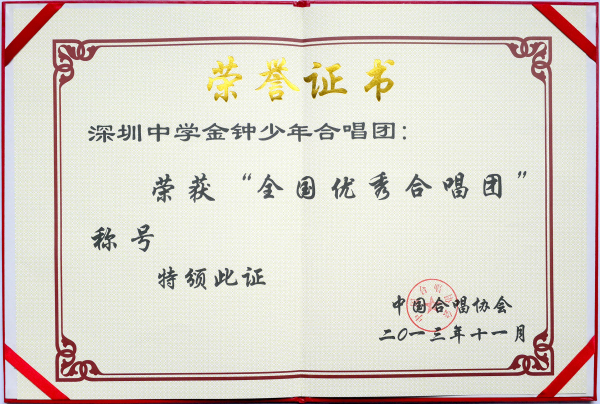 荣誉证书
深圳中学金钟少年合唱团：
荣获“全国优秀合唱团”
称号
特颁此证
中国合唱协会
二〇一三年十一月